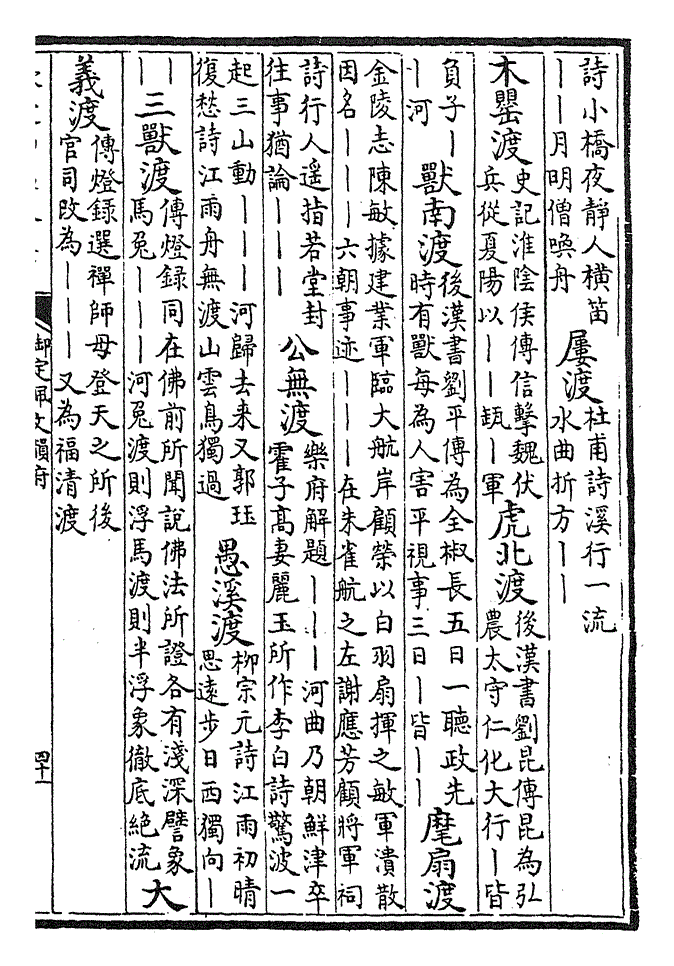 詩小橋夜靜人横笛
｜｜月明僧喚舟
屢渡
杜甫詩溪行一流
水曲折方｜｜
木罌渡
史記淮陰侯傳信擊魏伏
兵從夏陽以｜｜缻｜軍
虎北渡
後漢書劉昆傳昆為弘
農太守仁化大行｜皆
負子｜
｜河
獸南渡
後漢書劉平傳為全椒長五日一聽政先
時有獸每為人害平視事三日｜皆｜｜
麾扇渡
金陵志陳敏據建業軍臨大航岸顧榮以白羽扇揮之敏軍潰散
因名｜｜｜六朝事迹｜｜｜在朱雀航之左謝應芳顧將軍祠
詩行人遥指若堂封
往事猶論｜｜｜
公無渡
樂府解題｜｜｜河曲乃朝鮮津卒
霍子高妻麗玉所作李白詩驚波一
起三山動｜｜｜河歸去来又郭珏
復愁詩江雨舟無渡山雲鳥獨過
愚溪渡
柳宗元詩江雨初晴
思遠步日西獨向｜
｜
｜
三獸渡
傳燈録同在佛前所聞說佛法所證各有淺深譬象
馬兔｜｜｜河兔渡則浮馬渡則半浮象徹底絶流
大
義渡
傳燈録選禪師母登天之所後
官司改為｜｜｜又為福清渡
御定佩文韻府
四十一